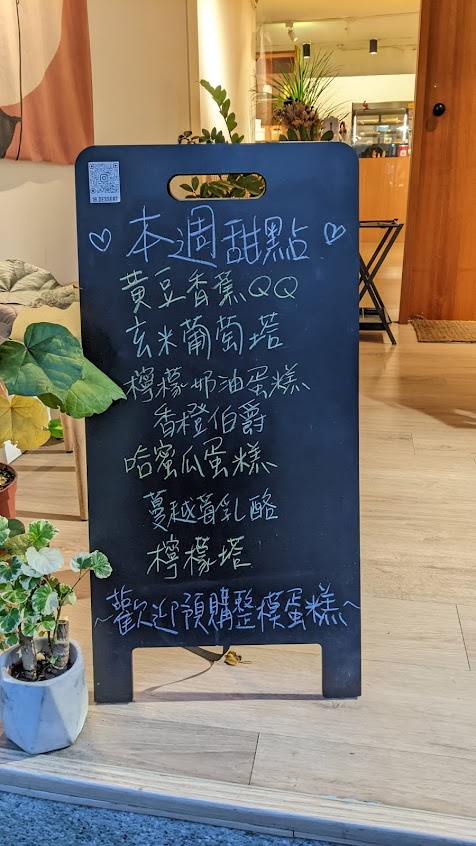 18 DESSERT
♡本週甜點♡
黃豆香蕉QQ
玄米葡萄塔
檸檬奶油蛋糕
香橙伯爵
哈蜜瓜蛋糕
蔓越莓乳酪
檸檬塔
~歡迎預購整模蛋糕~